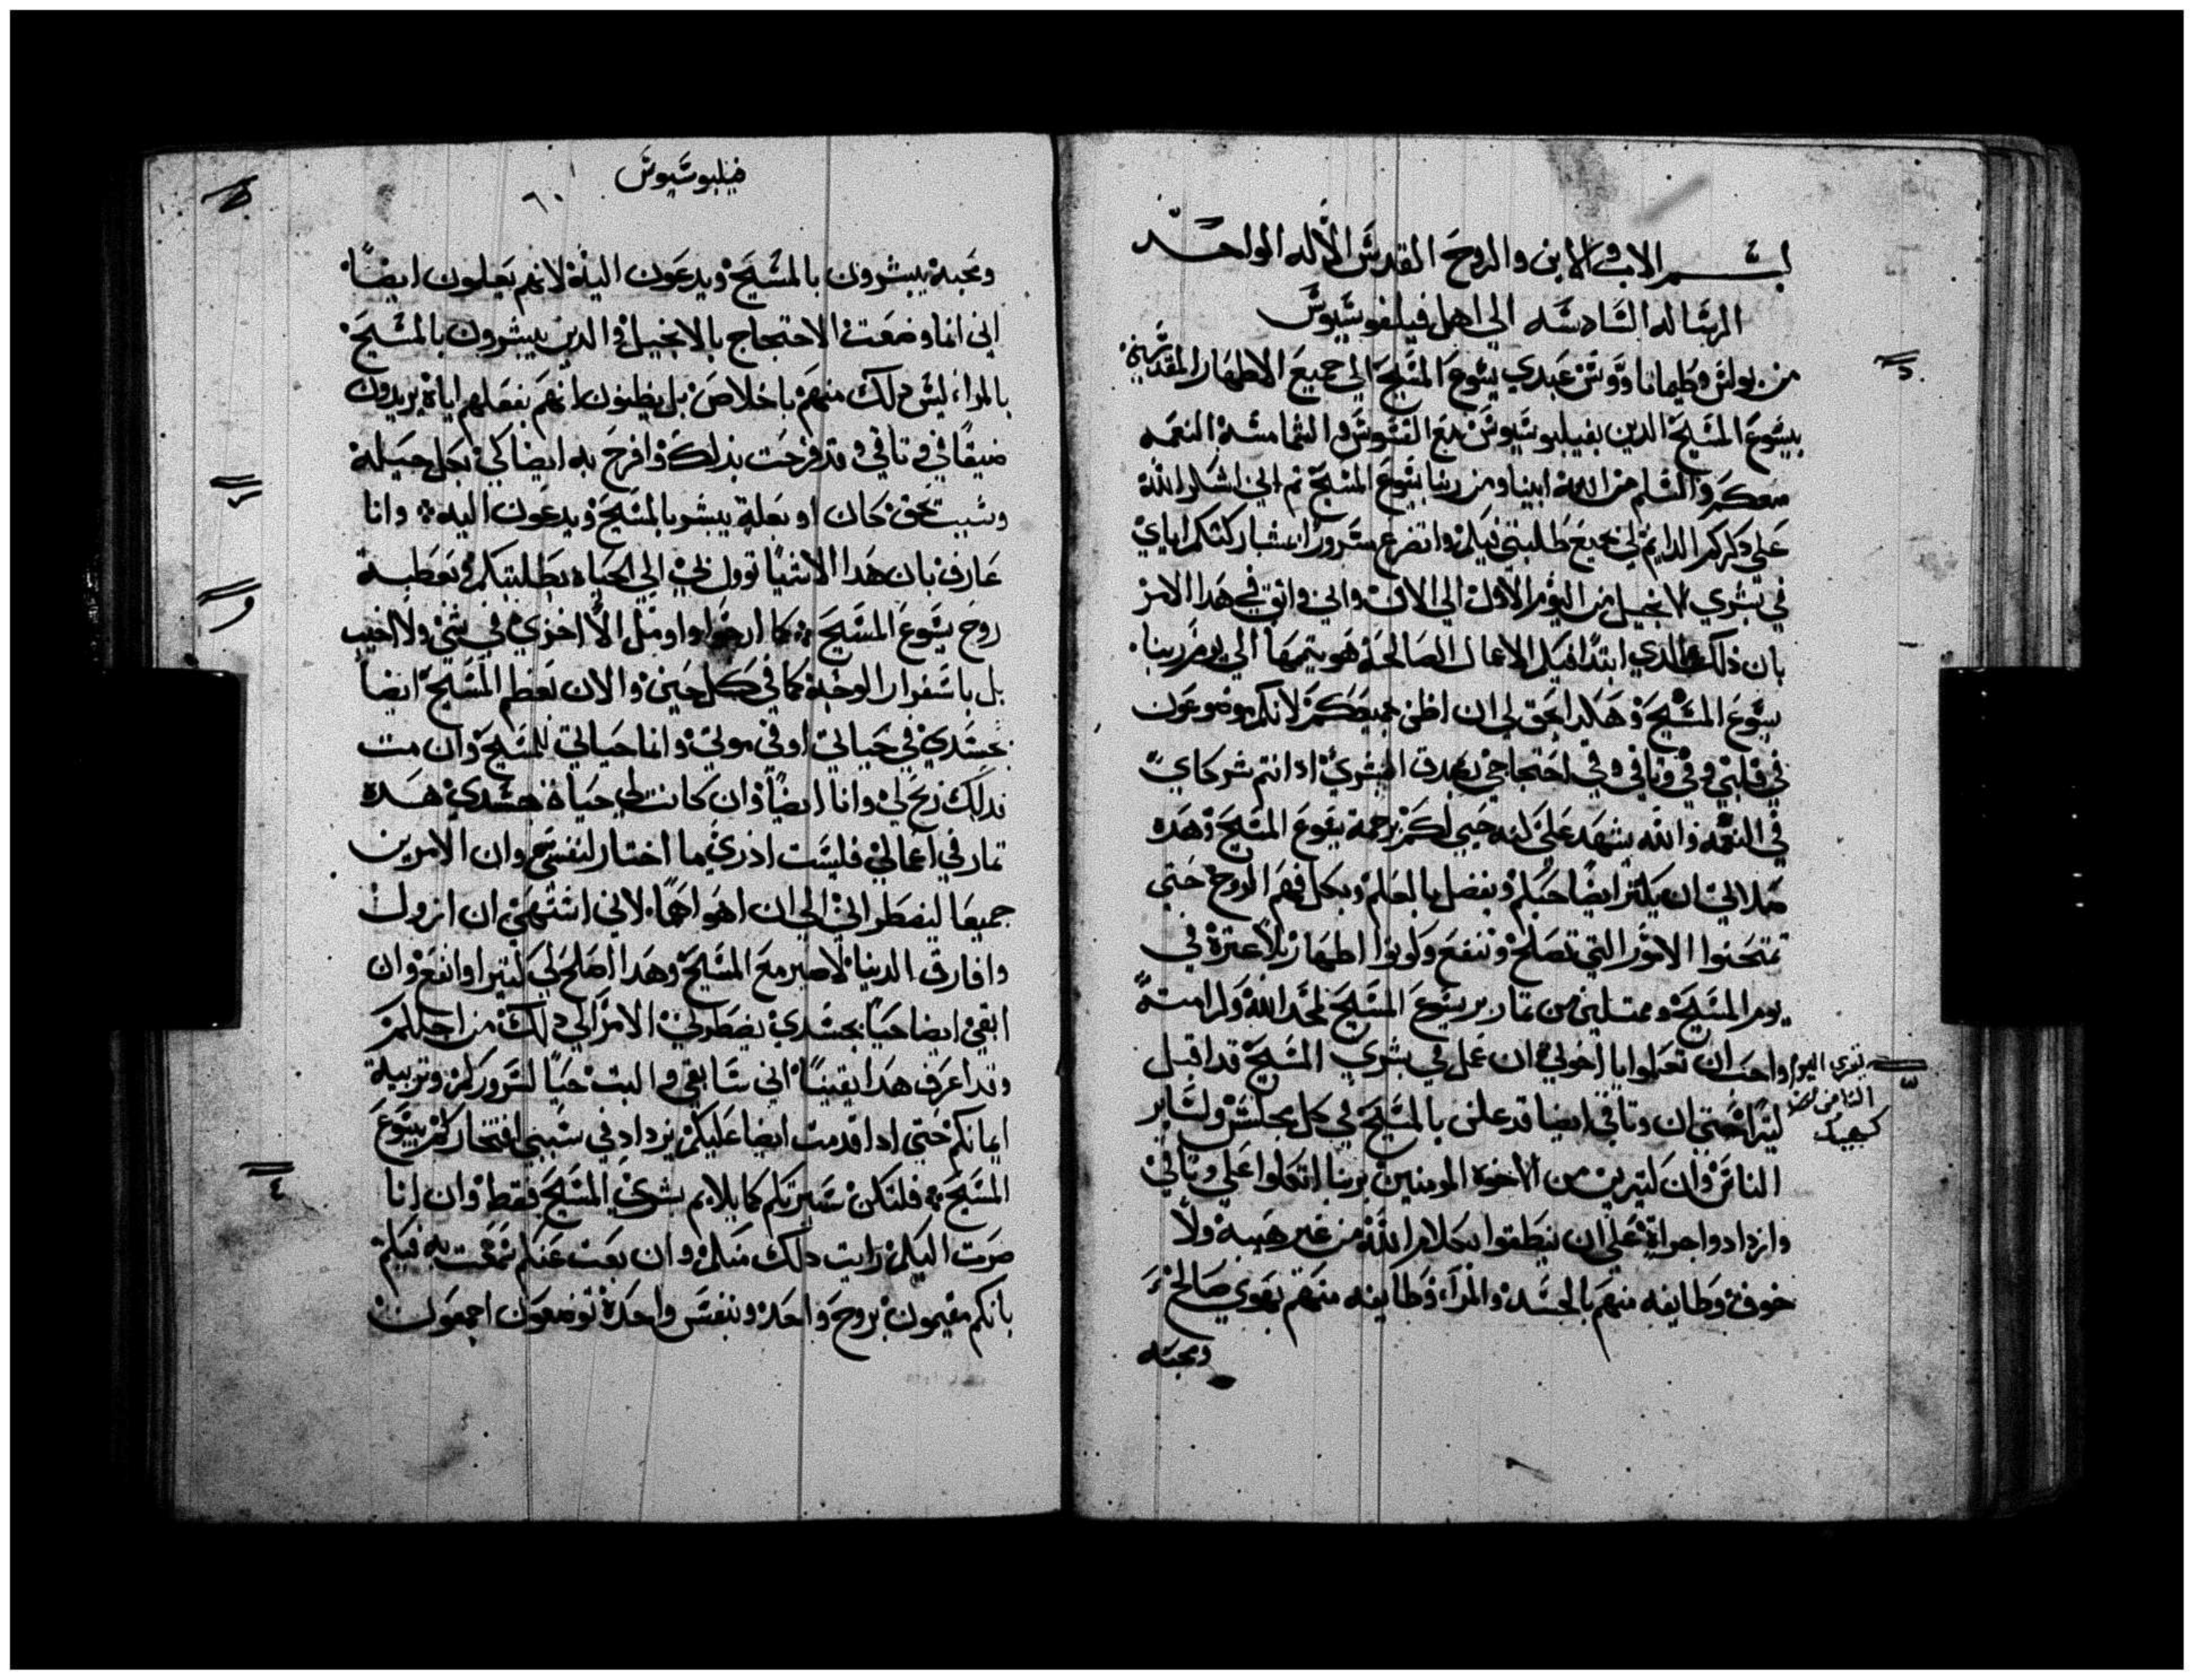 بسم الاب والابن والروح القدس الاله الواحد
الرساله السادسه الي اهل فيلفوسيوس
من بولس وطيماتاووس عبدي يسوع المسيح الي جميع الاطهار المقدسين
بيسوع المسيح الدين بفيلبوسيوس مع القسوس والشمامسه النعمه
معكم والسلم من الله ابينا ومن ربنا يسوع المسيح ثم اني اشكر الله
علي دكركم الدايم في جميع طلبتي فيكم واتضرع مسرورا بمشاركتكم اياي
في بشري الانجيل من اليوم الاول الي الان واني واثق في هدا الامر
بان ذلك الدي ابتدا فيكم الاعمال الصالحه هو يتمها الي يوم ربنا
يسوع المسيح وهكدا يحق لي ان اظن بجميعكم لانكم موضوعون
في قلبي وفي وثاقي وفي احتجاجي بصدق البشري اد انتم شركاي
في النعمه والله يشهد علي انه حبي لكم برحمة يسوع المسيح وهده
صلاتي ان يكثر ايضا حبكم ويفضل بالعلم وبكل فهم الروح حتي
تمتحنوا الامور التي تصلح وتنفع وتكونوا اطهار بلا عترة في
يوم المسيح وممتلين من تمار بر يسوع المسيح لمجد الله وكرامته
واحب ان تعلموا يا اخوتي ان عملي في بشري المسيح قد اقبل
تقري اليوم
التامن
كيهك
كثيرا حتي ان وتاقي ايضا قد علن بالمسيح في كل مجلس ولساير
الناس وان كثيرين من الاخوة المومنين بربنا اتكلوا علي وتاقي
وازدادوا جراة علي ان ينطقوا بكلام الله من غير هيبة ولا
خوف وطايفه منهم بالحسد والمراء وطايفه منهم بهوي صالح
ومحبه
فيلبوسيوس
٦٠
ومحبة يبشرون بالمسيح ويدعون اليه لانهم يعلمون ايضا
اني انما وضعت الاحتجاج بالانجيل والدين يبشرون بالمسيح
بالمراء ليس دلك منهم باخلاص بل يظنون انهم بفعلهم اياه يريدون
ضيقا في وتاقي وقد فرحت بذلك وافرح به ايضا كي بكل حيلة
وسبب بحق كان او بعلة يبشر بالمسيح ويدعون اليه وانا
عارف بان هدا الاشيا توول لي الي الحياه بطلبتكم وبعطية
روح يسوع المسيح كما ارجوا واومل الا اخزي في شي ولا اخيب
بل باسفرار الوجه كما في كل حين والان يعظم المسيح ايضا
بجسدي في حياتي او في موتي وانما حياتي للمسيح وان مت
فدلك ربح لي وانا ايضا وان كانت لي حياة جسدي هده
تمار في اعمالي فليست ادري ما اختار لنفسي وان الامرين
جميعا ليضطراني الي ان اهواهما لاني اشتهي ان ازول
وافارق الدنيا لاصير مع المسيح وهدا اصلح لي كتيرا وانفع وان
ابقي ايضا حيا بجسدي يضطرني الامر الي دلك من اجلكم
وقد اعرف هدا يقينا اني سابقي والبت حيا لسروركم وتربية
ايمانكم حتي ادا قدمت ايضا عليكم يزداد في سببي افتخاركم بيسوع
المسيح فلتكن سيرتكم كما يلايم بشري المسيح فقط وان انا
صرت اليكم رايت دلك منكم وان بعت عنكم سمعت به فيكم
بانكم مقيمون بروح واحده وبنفس واحدة توضعون اجمعون